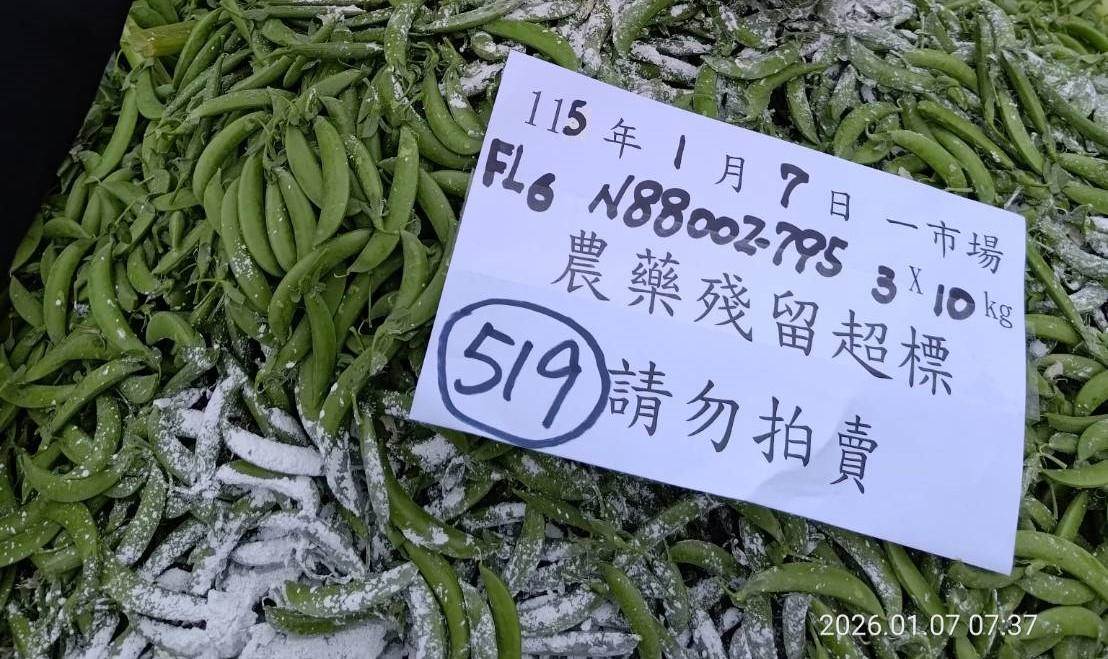 115年1月7日 一市場
FL6 N88002-795 3x10kg
農藥殘留超標
519 請勿拍賣
2026.01.07 07:37